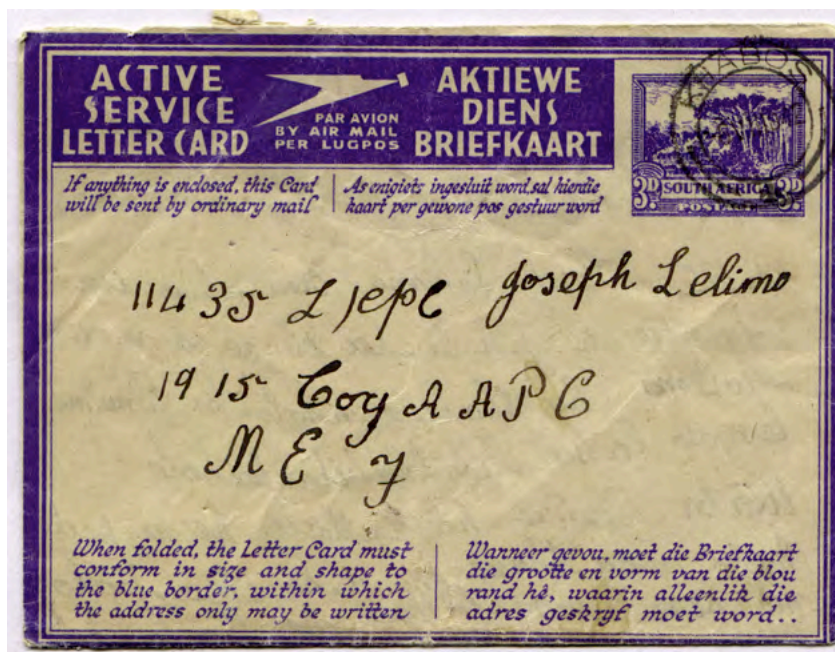 ACTIVE
SERVICE
LETTER CARD
PAR AVION
BY AIR MAIL
PER LUGPOS
AKTIEWE
DIENS
BRIEFKAART
If anything is enclosed, this Card
will be sent by ordinary mail
As enigiets ingesluit word, sal hierdie
kaart per gewone pos gestuur word
3D SOUTH AFRICA 3D
POSTAGE
11435 L/cpl Joseph Lelimo
1915 Coy A A P C
M E F
When folded, the Letter Card must
conform in size and shape to
the blue border, within which
the address only may be written
Wanneer gevou, moet die Briefkaart
die grootte en vorm van die blou
rand hê, waarin alleenlik die
adres geskryf moet word..